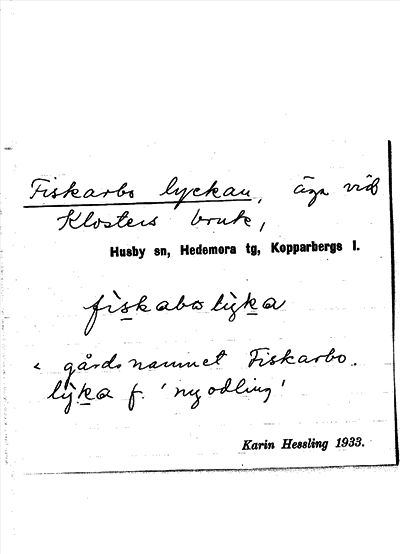 Fiskarbo lyckan, äga vid
Klosters bruk,
Husby sn, Hedemora tg, Kopparbergs l.
fìskabolỳka
< gårdsnamnet Fiskarbo.
lỳka f. 'nyodling'
Karin Hessling 1933.